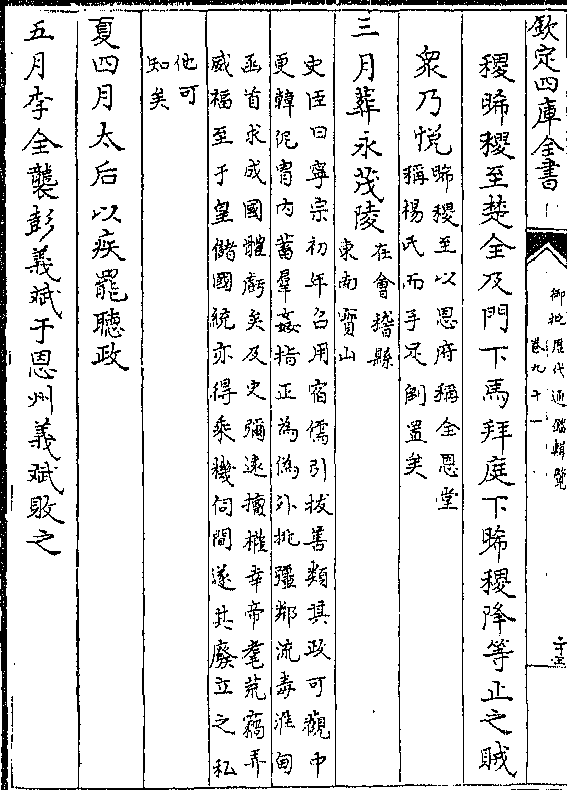 欽定四庫全書
御批歷代通鑑輯覽
卷九十一
稷晞稷至楚全及門下馬拜庭下晞稷降等止之賊
衆乃悅
晞稷至以恩府稱全恩堂
稱楊氏而手足倒置矣
三月葬永茂陵
在會稽縣
東南寶山
史臣曰寧宗初年召用宿儒引拔善類其政可觀中
更韓侂胄内蓄羣姦指正為偽外挑彊鄰流毒淮甸
函首求成國體虧矣及史彌遠擅權幸帝耄荒竊弄
威福至于皇儲國統亦得乘機伺間遂其廢立之私
他可
知矣
夏四月太后以疾罷聽政
五月李全襲彭義斌于恩州義斌敗之